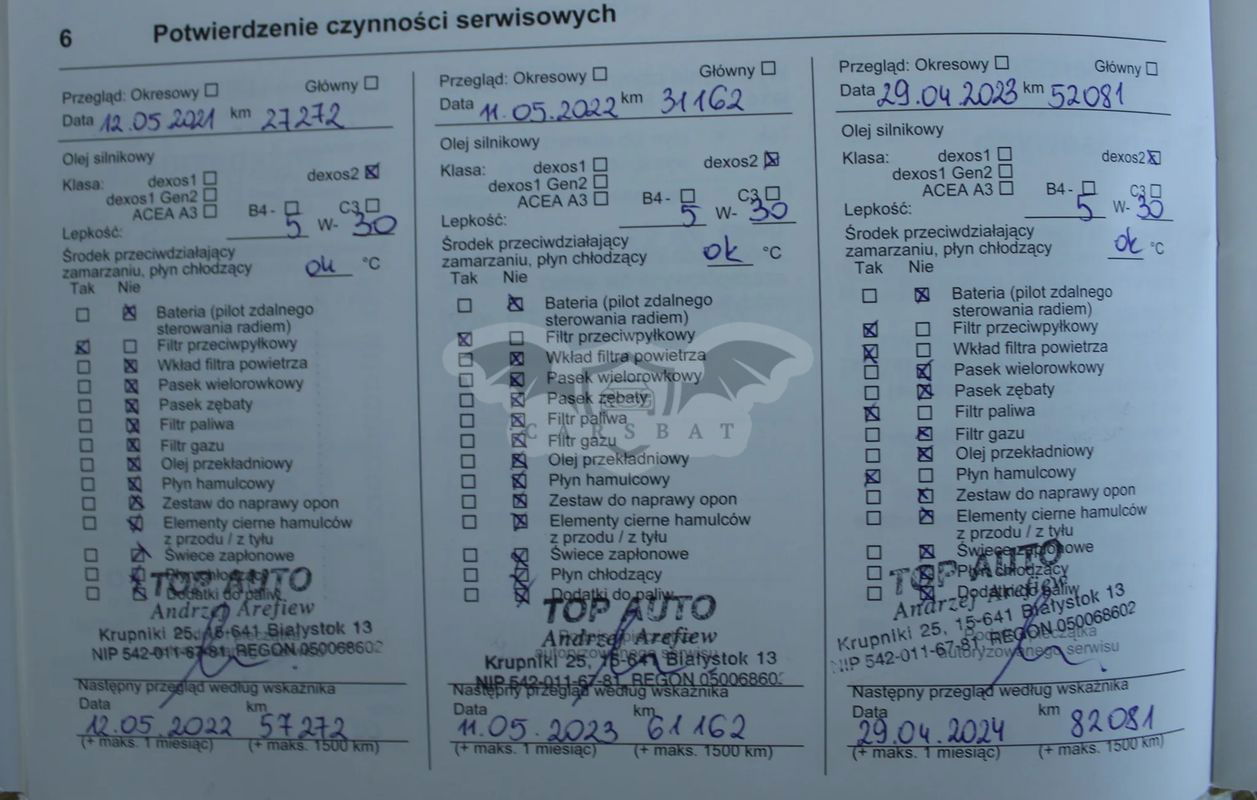 6 Potwierdzenie czynności serwisowych
Przegląd: Okresowy Główny
Data 12.05.2021 km 27272
Olej silnikowy
Klasa: dexos1 dexos2
dexos1 Gen2
ACEA A3 B4 - C3
Lepkość: 5 W- 30
Środek przeciwdziałający
zamarzaniu, płyn chłodzący ok °C
Tak Nie
Bateria (pilot zdalnego
sterowania radiem)
Filtr przeciwpyłkowy
Wkład filtra powietrza
Pasek wielorowkowy
Pasek zębaty
Filtr paliwa
Filtr gazu
Olej przekładniowy
Płyn hamulcowy
Zestaw do naprawy opon
Elementy cierne hamulców
z przodu / z tyłu
Świece zapłonowe
Płyn chłodzący
Dodatki do paliw
TOP AUTO
Andrzej Arefiew
Krupniki 25, 15-641 Białystok 13
NIP 542-011-67-81, REGON 050068602
Następny przegląd według wskaźnika
Data km
12.05.2022 57272
(+ maks. 1 miesiąc) (+ maks. 1500 km)
Przegląd: Okresowy Główny
Data 11.05.2022 km 31162
Olej silnikowy
Klasa: dexos1 dexos2
dexos1 Gen2
ACEA A3 B4 - C3
Lepkość: 5 W- 30
Środek przeciwdziałający
zamarzaniu, płyn chłodzący ok °C
Tak Nie
Bateria (pilot zdalnego
sterowania radiem)
Filtr przeciwpyłkowy
Wkład filtra powietrza
Pasek wielorowkowy
Pasek zębaty
Filtr paliwa
Filtr gazu
Olej przekładniowy
Płyn hamulcowy
Zestaw do naprawy opon
Elementy cierne hamulców
z przodu / z tyłu
Świece zapłonowe
Płyn chłodzący
Dodatki do paliw
TOP AUTO
Andrzej Arefiew
autoryzowanego serwisu
Krupniki 25, 15-641 Białystok 13
NIP 542-011-67-81, REGON 05006860
Następny przegląd według wskaźnika
Data km
11.05.2023 61162
(+ maks. 1 miesiąc) (+ maks. 1500 km)
Przegląd: Okresowy Główny
Data 29.04.2023 km 52081
Olej silnikowy
Klasa: dexos1 dexos2
dexos1 Gen2
ACEA A3 B4 - C3
Lepkość: 5 W- 30
Środek przeciwdziałający
zamarzaniu, płyn chłodzący ok °C
Tak Nie
Bateria (pilot zdalnego
sterowania radiem)
Filtr przeciwpyłkowy
Wkład filtra powietrza
Pasek wielorowkowy
Pasek zębaty
Filtr paliwa
Filtr gazu
Olej przekładniowy
Płyn hamulcowy
Zestaw do naprawy opon
Elementy cierne hamulców
z przodu / z tyłu
Świece zapłonowe
Płyn chłodzący
Dodatki do paliw
TOP AUTO
Andrzej Arefiew
Krupniki 25, 15-641 Białystok 13
NIP 542-011-67-81, REGON 050068602
autoryzowanego serwisu
Następny przegląd według wskaźnika
Data km
29.04.2024 82081
(+ maks. 1 miesiąc) (+ maks. 1500 km)
CARSBAT